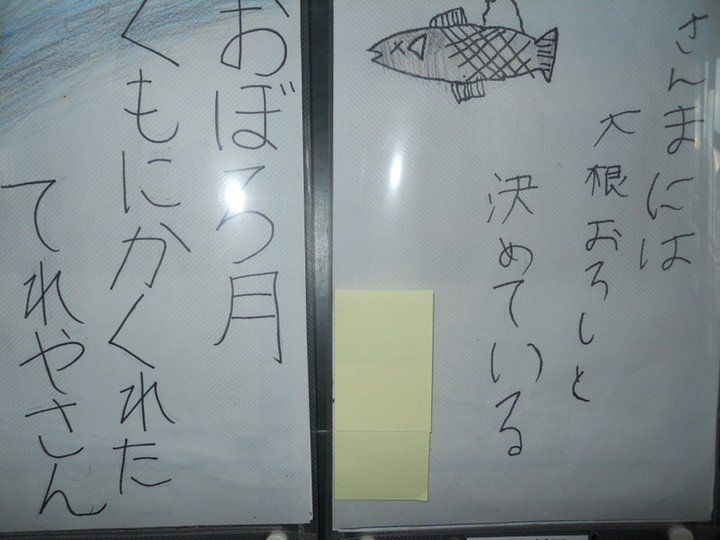 さんまには
大根おろしと
決めている
おぼろ月
くもにかくれた
てれやさん